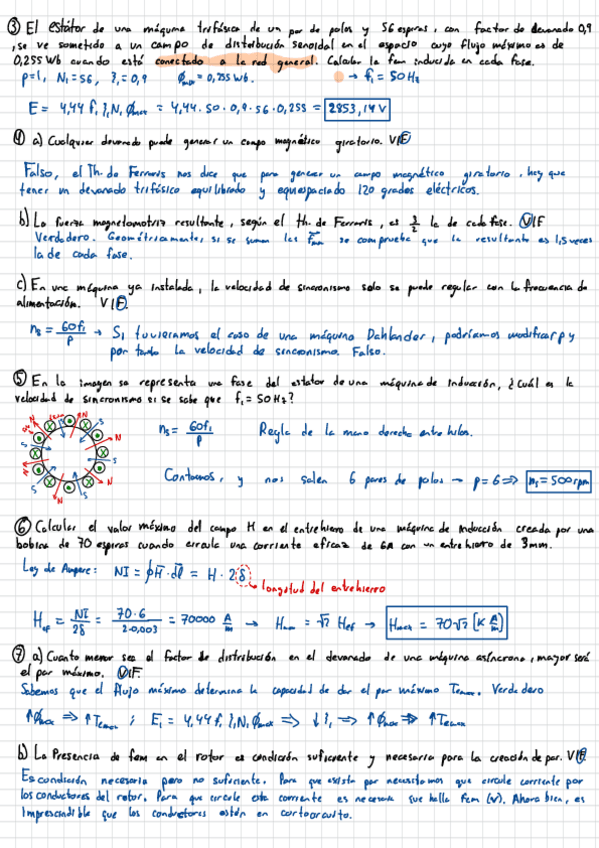 ③ El estátor de una máquina trifásica de un par de polos y 56 espiras, con factor de devanado 0,9
, se ve sometido a un campo de distribución senoidal en el espacio cuyo flujo máximo es de
0,255 Wb cuando está conectado a la red general. Calcular la fem inducida en cada fase.
p=1, N₁=56, ξ₁=0,9 ϕmax=0,255 Wb. → f₁=50Hz
E = 4,44 f₁ ξ₁ N₁ ϕmax = 4,44·50·0,9·56·0,255 = 2853,14 V
④ a) Cualquier devanado puede generar un campo magnético giratorio. V/F
Falso, el Th. de Ferraris nos dice que para generar un campo magnético giratorio, hay que
tener un devanado trifásico equilibrado y equiespaciado 120 grados eléctricos.
b) La fuerza magnetomotriz resultante, según el th. de Ferraris, es 3/2 la de cada fase. V/F
Verdadero. Geométricamente, si se suman las Fmm se comprueba que la resultante es 1,5 veces
la de cada fase.
c) En una máquina ya instalada, la velocidad de sincronismo solo se puede regular con la frecuencia de
alimentación. V/F
ns = 60f₁/p → Si tuvieramos el caso de una máquina Dahlander, podríamos modificar p y
por tanto la velocidad de sincronismo. Falso.
⑤ En la imagen se representa una fase del estator de una máquina de inducción, ¿Cuál es la
velocidad de sincronismo si se sabe que f₁=50Hz?
ns = 60f₁/p Regla de la mano derecha entre hilos.
Contamos, y nos salen 6 pares de polos → p=6 ⇒ ns=500rpm
N S N S N S N S
⑥ Calcular el valor máximo del campo H en el entrehierro de una máquina de inducción creada por una
bobina de 70 espiras cuando circula una corriente eficaz de 6A con un entrehierro de 3mm.
Ley de Ampere: NI = ∮H·dl = H·2δ
→ longitud del entrehierro
Hef = NI/2δ = 70·6/2·0,003 = 70000 A/m → Hmax = √2 Hef → Hmax = 70√2 [K A/m]
⑦ a) Cuanto menor sea el factor de distribución en el devanado de una máquina asíncrona, mayor será
el par máximo. V/F.
Sabemos que el flujo máximo determina la capacidad de dar el par máximo Temax. Verdadero
↑ϕmax ⇒ ↑Temax ; E₁ = 4,44 f₁ ξ₁ N₁ ϕmax ⇒ ↓ξ₁ ⇒ ↑ϕmax ⇒ ↑Temax
b) La Presencia de fem en el rotor es condición suficiente y necesaria para la creación de par. V/F
Es condición necesaria pero no suficiente. Para que exista par necesitamos que circule corriente por
los conductores del rotor. Para que circule esta corriente es necesario que halla Fem (V). Ahora bien, es
imprescindible que los conductores estén en cortocircuito.